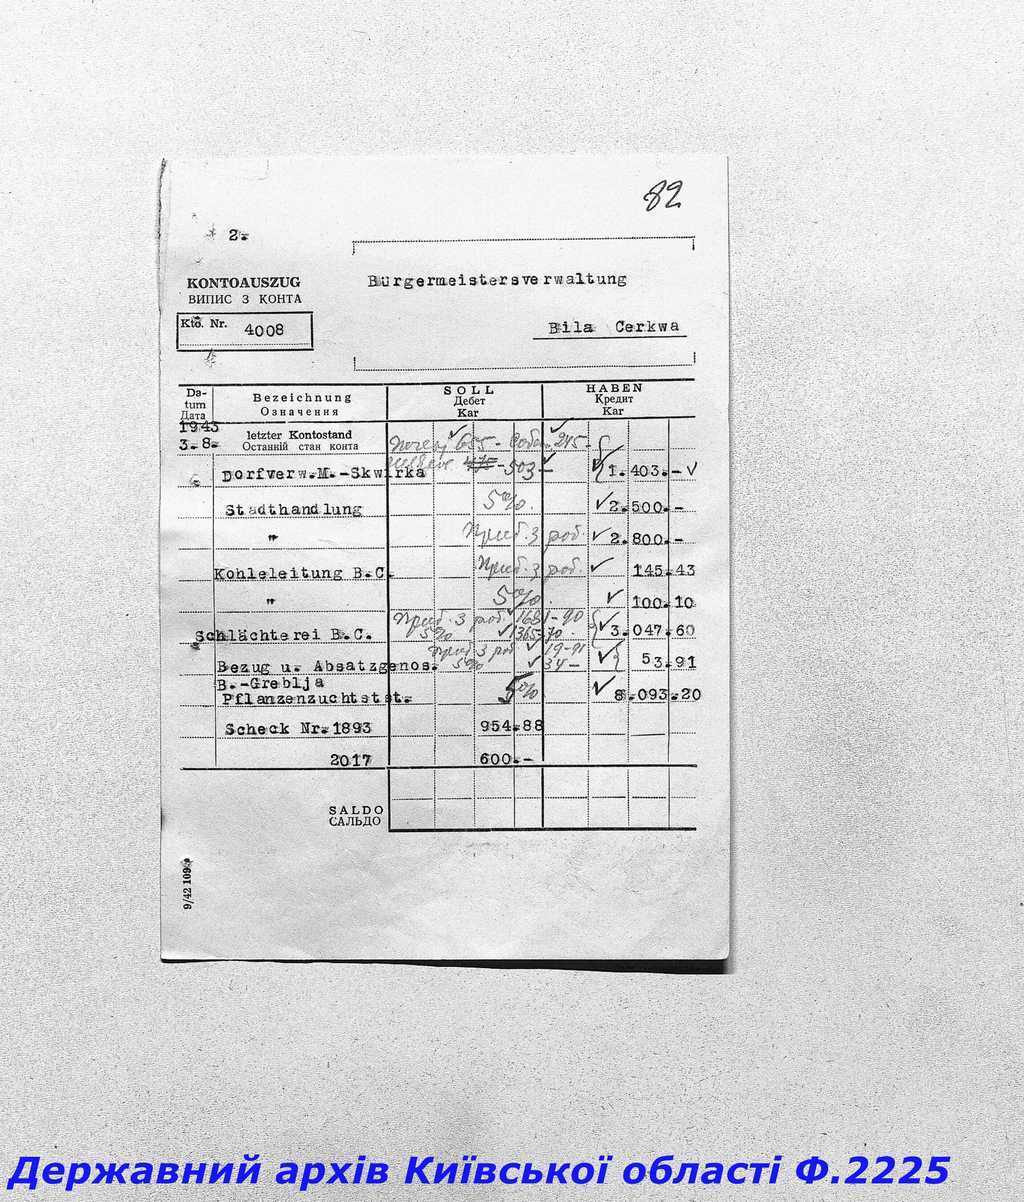 82
2.-
Bürgermeistersverwaltung
KONTOAUSZUG
ВИПИС З КОНТА
Kto. Nr. 4008
Bila Cerkwa
Da-
tum
Дата
Bezeichnung
Означення
SOLL
Дебет
Kar
HABEN
Кредит
Kar
1943
3.8.
letzter Kontostand
Останній стан конта
655 - 245 -
Dorfverw.M.-Skwirka 475 - 503 - 1.403.- V
Stadthandlung 5% 2.500.-
" Приб. з роб. 2.800.-
Kohleleitung B.C. Приб. з роб. 145.43
" 5% 100.10
Приб. з роб. 1681-90
Schlächterei B.C. 5% 1365-70 3.047.60
Приб з роб 19-91
Bezug u. Absatzgenos. 5% 34- 53.91
B.-Greblja
Pflanzenzuchtstst. 5% 8.093.20
Scheck Nr.1893 954.88
2017 600.-
SALDO
САЛЬДО
9/42 109
Державний архів Київської області Ф.2225